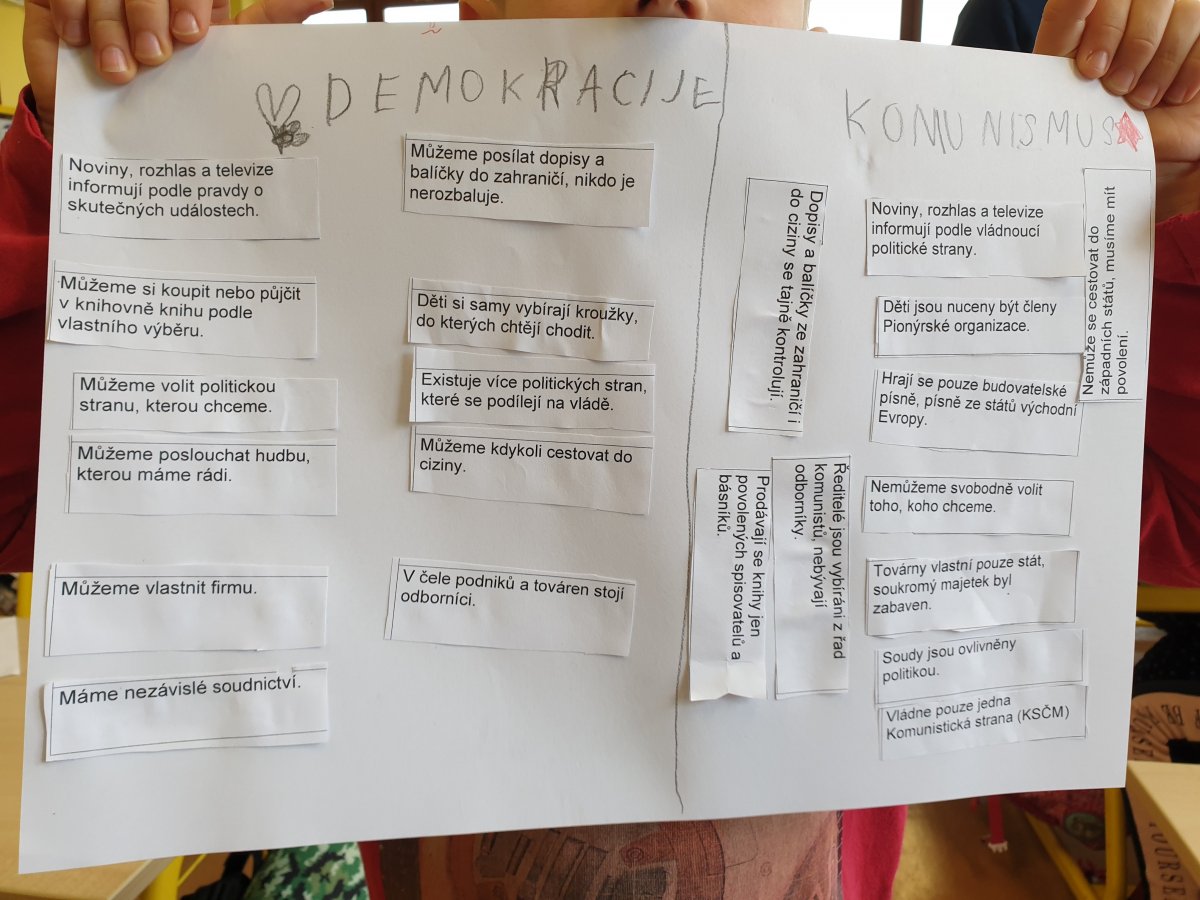 DEMOKRACIJE
Noviny, rozhlas a televize
informují podle pravdy o
skutečných událostech.
Můžeme si koupit nebo půjčit
v knihovně knihu podle
vlastního výběru.
Můžeme volit politickou
stranu, kterou chceme.
Můžeme poslouchat hudbu,
kterou máme rádi.
Můžeme vlastnit firmu.
Máme nezávislé soudnictví.
Můžeme posílat dopisy a
balíčky do zahraničí, nikdo je
nerozbaluje.
Děti si samy vybírají kroužky,
do kterých chtějí chodit.
Existuje více politických stran,
které se podílejí na vládě.
Můžeme kdykoli cestovat do
ciziny.
V čele podniků a továren stojí
odborníci.
KOMUNISMUS
Dopisy a balíčky ze zahraničí i
do ciziny se tajně kontrolují.
Prodávají se knihy jen
povolených spisovatelů a
básníků.
Ředitelé jsou vybíráni z řad
komunistů, nebývají
odborníky.
Noviny, rozhlas a televize
informují podle vládnoucí
politické strany.
Děti jsou nuceny být členy
Pionýrské organizace.
Hrají se pouze budovatelské
písně, písně ze států východní
Evropy.
Nemůžeme svobodně volit
toho, koho chceme.
Továrny vlastní pouze stát,
soukromý majetek byl
zabaven.
Soudy jsou ovlivněny
politikou.
Vládne pouze jedna
Komunistická strana (KSČM)
Nemůže se cestovat do
západních států, musíme mít
povolení.